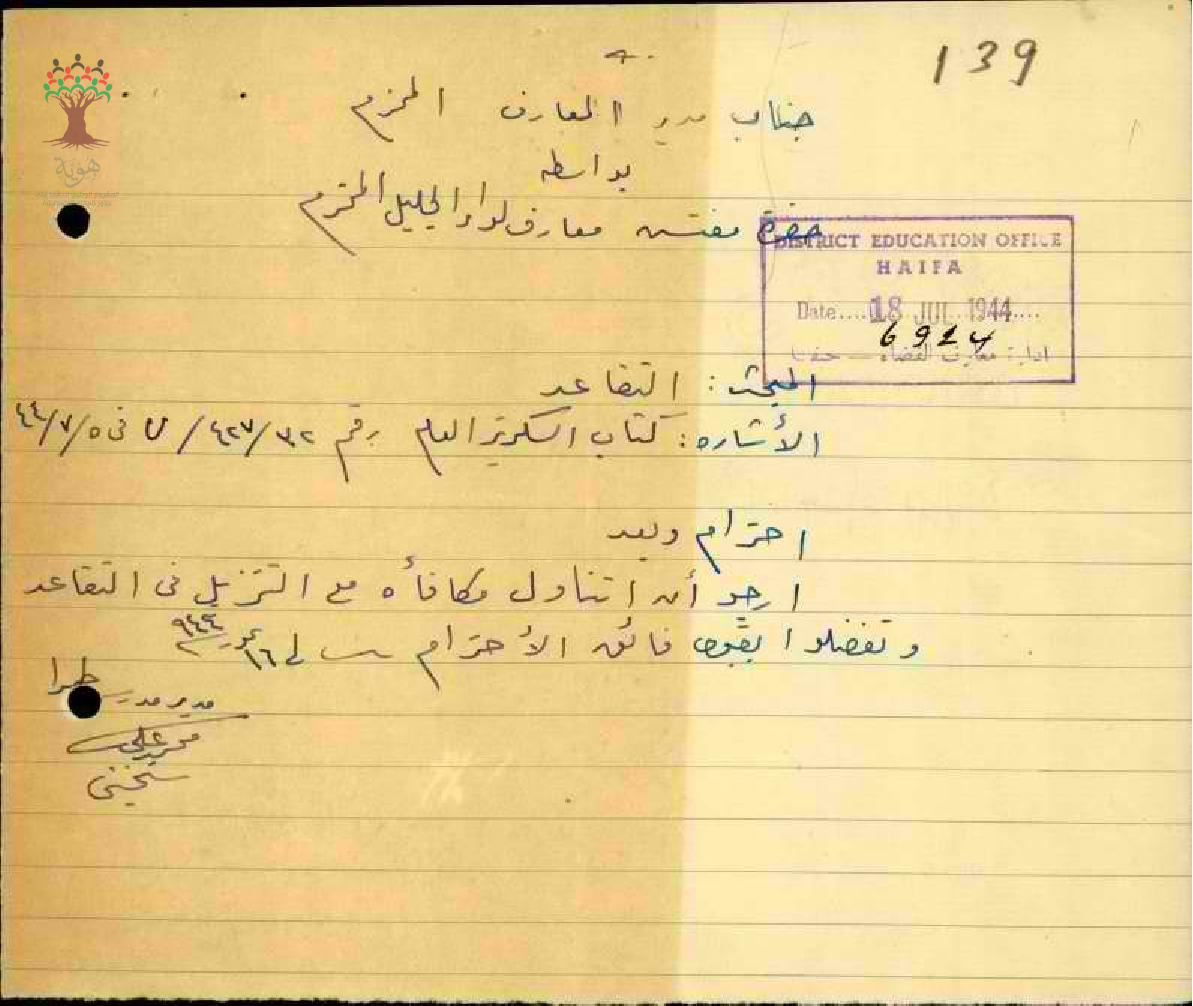 139
جناب مدير المعارف المحترم
بواسطة
حضرة مفتش معارف لواء الجليل المحترم
DISTRICT EDUCATION OFFICE
HAIFA
Date.... 18 JUL 1944....
6914
ادارة معارف القضاء — حيفا
المبحث : التقاعد
الأشاره : كتاب السكرتير العام رقم ٣٢/٤٢٧/ U فى ٥/٧/٤٤
احترام وبعد
ارجو أن اتناول مكافأه مع التنزيل فى التقاعد
وتفضلوا بقبول فائق الأحترام
مدير مدرسة طيرا
محمد علي
هوية